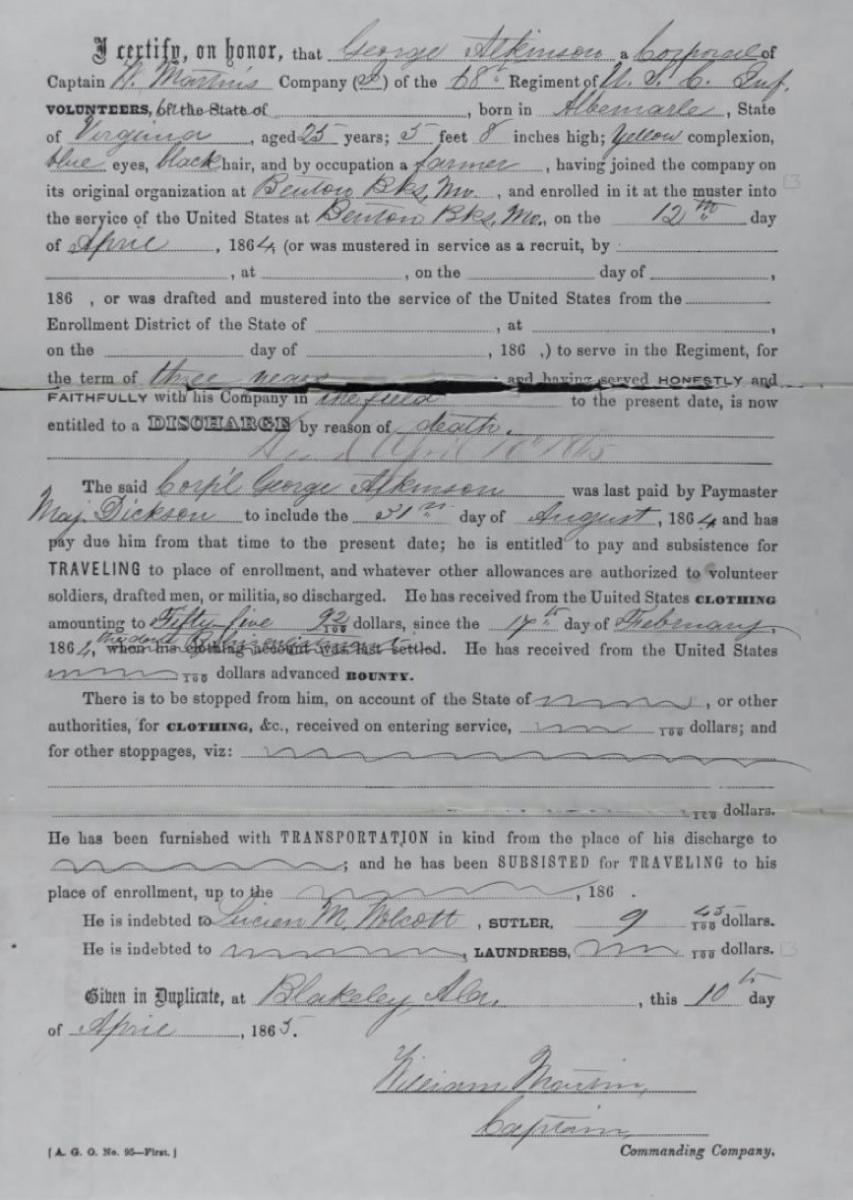 I certify, on honor, that George Atkinson a Corporal of
Captain W. Martin's Company (I) of the 68th Regiment of U. S. C. Inf.
VOLUNTEERS, of the State of , born in Albemarle, State
of Virginia, aged 25 years; 5 feet 8 inches high; Yellow complexion,
blue eyes, black hair, and by occupation a farmer, having joined the company on
its original organization at Benton Bks, Mo., and enrolled in it at the muster into
the service of the United States at Benton Bks, Mo., on the 12th day
of April, 1864, (or was mustered in service as a recruit, by
, at , on the day of ,
186 , or was drafted and mustered into the service of the United States from the
Enrollment District of the State of , at ,
on the day of , 186 ,) to serve in the Regiment, for
the term of three years ; and having served HONESTLY and
FAITHFULLY with his Company in the field to the present date, is now
entitled to a DISCHARGE by reason of death.
April 1865
The said Corp'l George Atkinson was last paid by Paymaster
Maj. Dickson to include the 31st day of August, 1864 and has
pay due him from that time to the present date; he is entitled to pay and subsistence for
TRAVELING to place of enrollment, and whatever other allowances are authorized to volunteer
soldiers, drafted men, or militia, so discharged. He has received from the United States CLOTHING
amounting to Fifty-five 92/100 dollars, since the 17th day of February,
1864, when his clothing account was last settled. He has received from the United States
/100 dollars advanced BOUNTY.
There is to be stopped from him, on account of the State of , or other
authorities, for CLOTHING, &c., received on entering service, /100 dollars; and
for other stoppages, viz:
/100 dollars.
He has been furnished with TRANSPORTATION in kind from the place of his discharge to
; and he has been SUBSISTED for TRAVELING to his
place of enrollment, up to the , 186 .
He is indebted to Lucien M. Wolcott, SUTLER, 9 45/100 dollars.
He is indebted to , LAUNDRESS, /100 dollars.
Given in Duplicate, at Blakeley, Ala., this 10th day
of April, 1865.
William Martin,
Captain,
[A. G. O. No. 95—First.] Commanding Company.